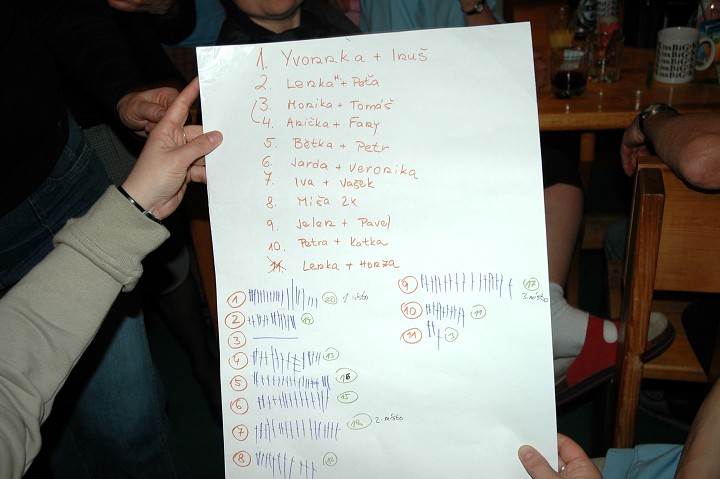 1. Yvonnka + Inuš
2. Lenka M. + Peťa
3. Monika + Tomáš
4. Anička + Fany
5. Bětka + Petr
6. Jarda + Veronika
7. Iva + Vašek
8. Míša 2x
9. Jelen + Pavel
10. Petra + Katka
11. Lenka + Honza
1 23 1. místo
2 14
3
4 13
5 16
6 15
7 2. místo
8
9 17 3. místo
10 11
11 3